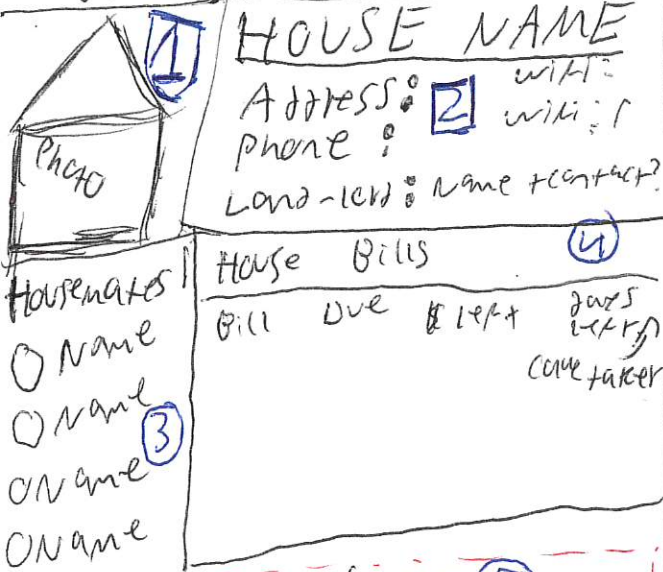 1
Photo
HOUSE NAME
Address:
2
wifi:
wifi:
phone:
Land-lord: Name + contact?
Housemates
O Name
O Name
3
O Name
O Name
House Bills
4
Bill Due $ left days
left
care taker